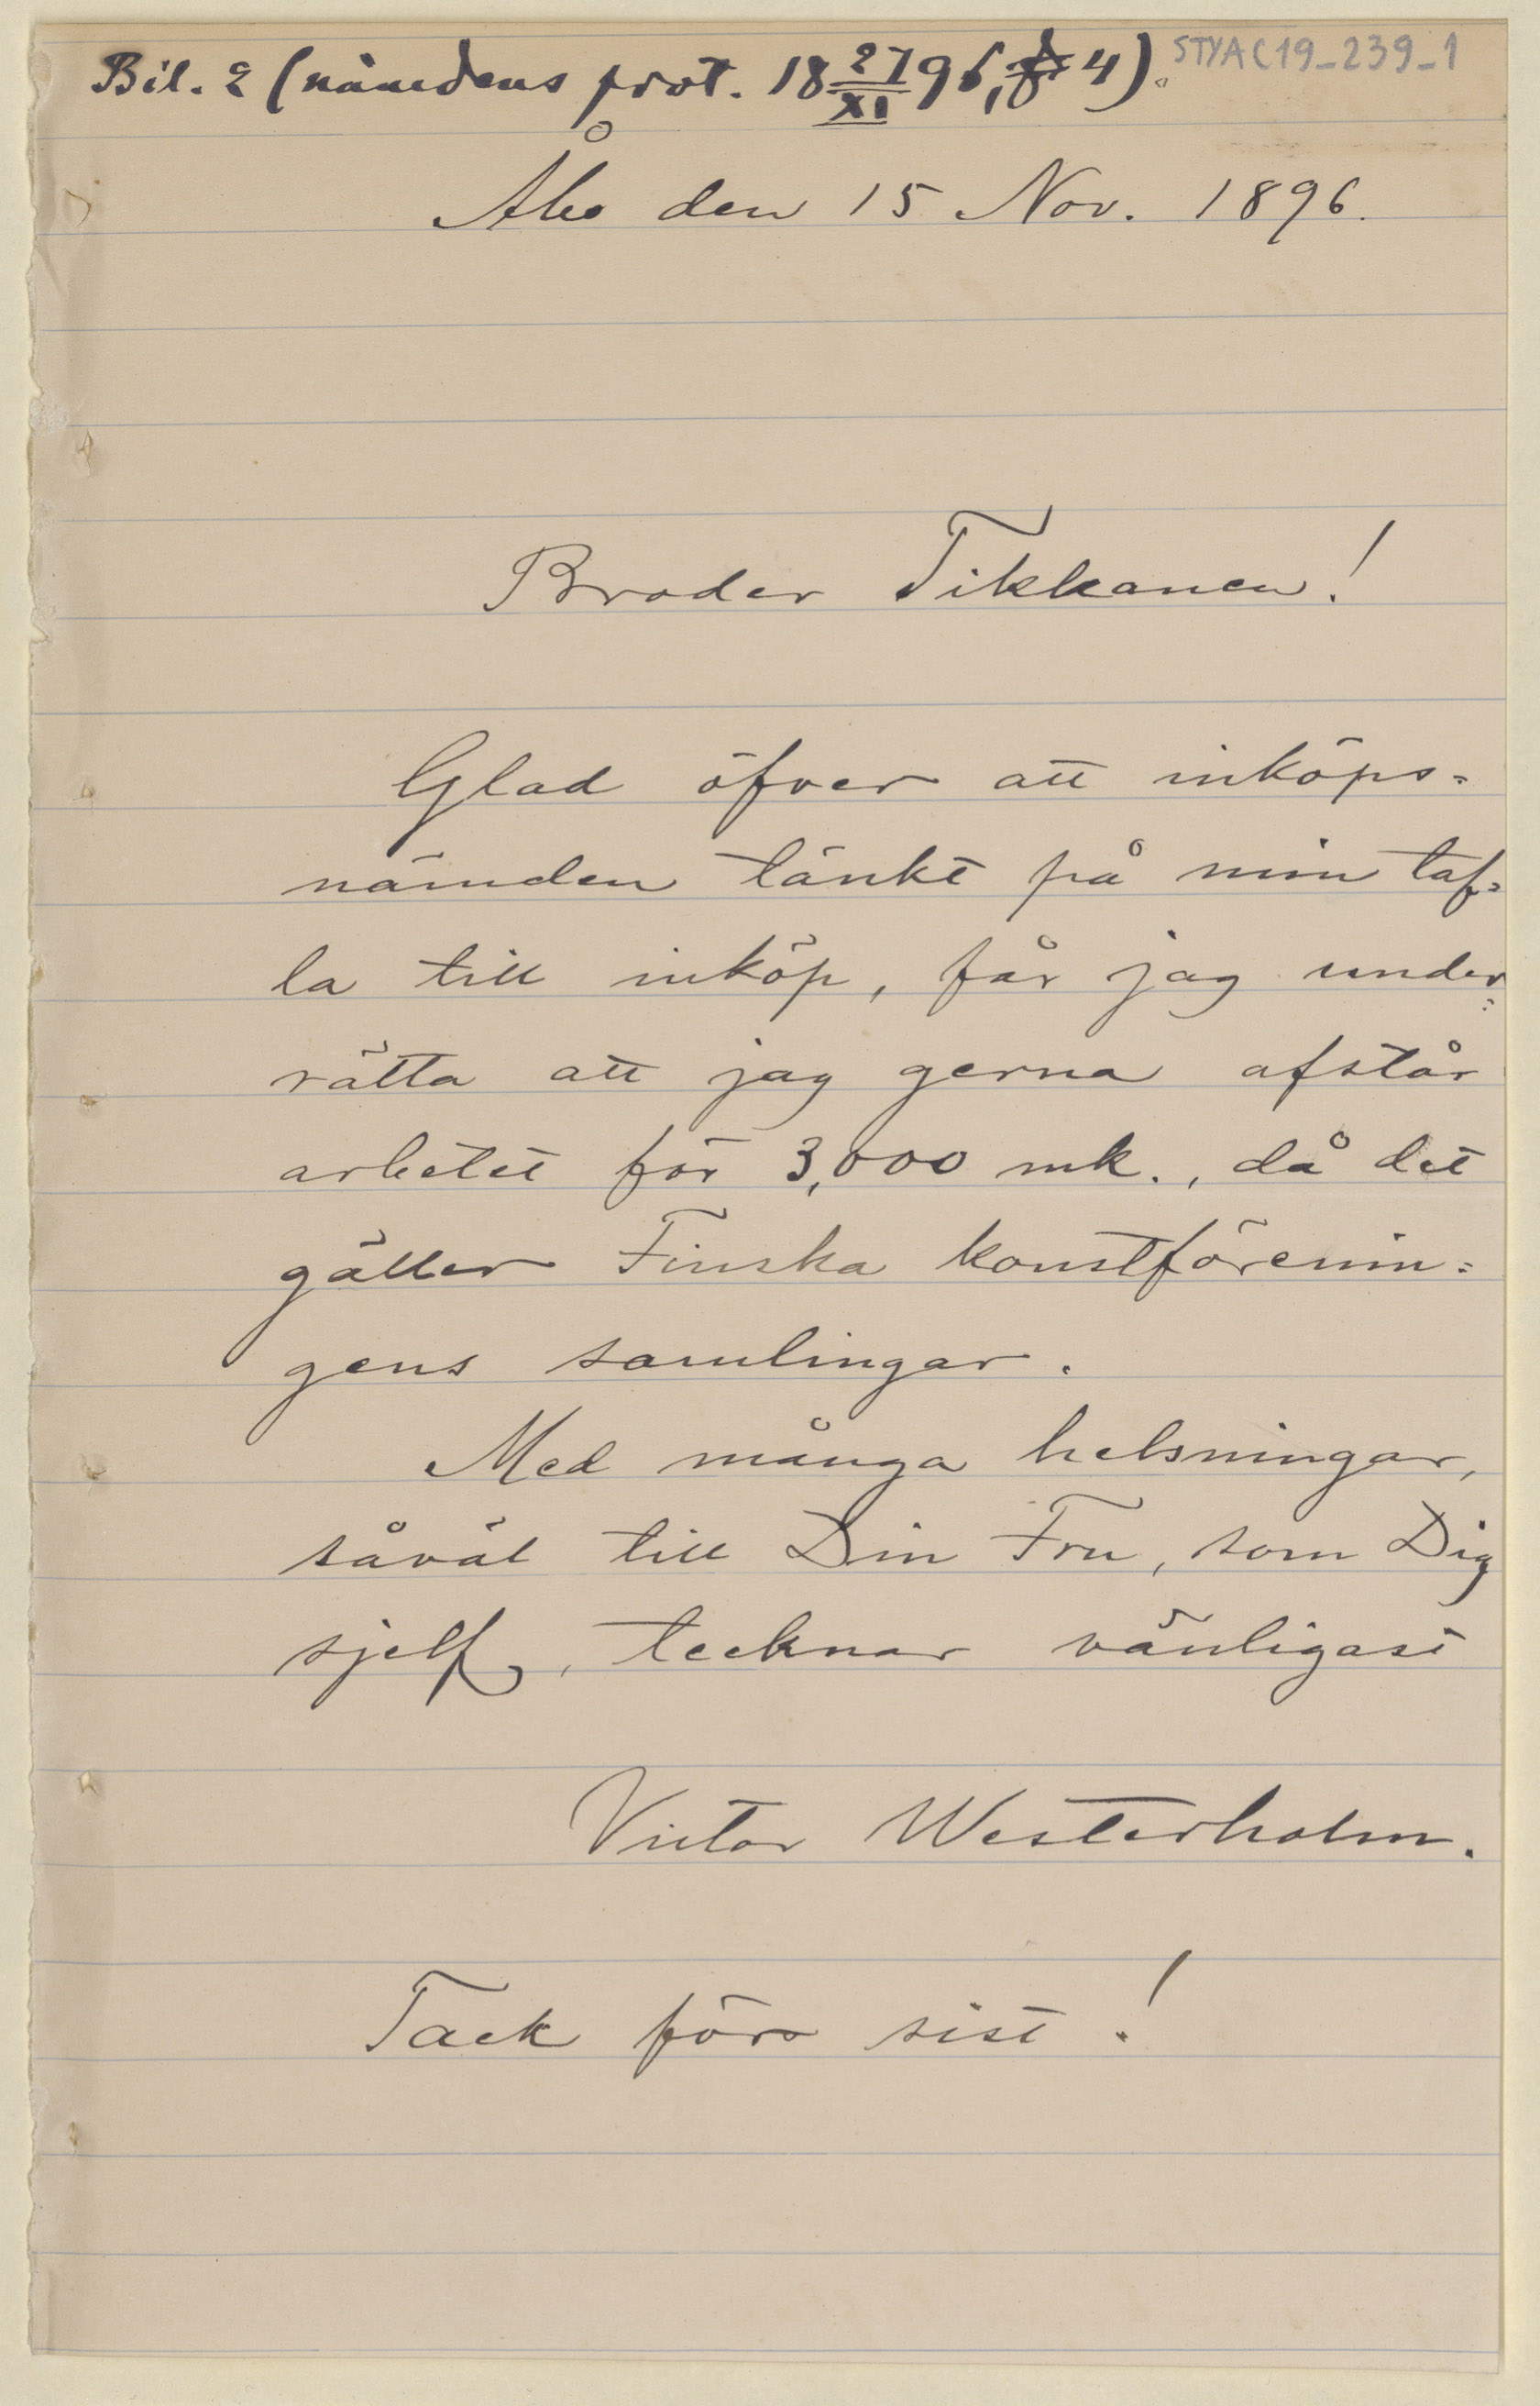 Bil. 2 (nämdens prot. 18 27/XI 96, § 4).
STYA C19_239_1
Åbo den 15 Nov. 1896.
Broder Tikkanen!
Glad öfver att inköps=
nämden tänkt på min taf=
la till inköp, får jag under=
rätta att jag gerna afstår
arbetet för 3,000 mk., då det
gäller Finska konstförenin=
gens samlingar.
Med många helsningar,
såväl till Din Fru, som Dig
sjelf, tecknar vänligast
Victor Westerholm.
Tack förr sist!